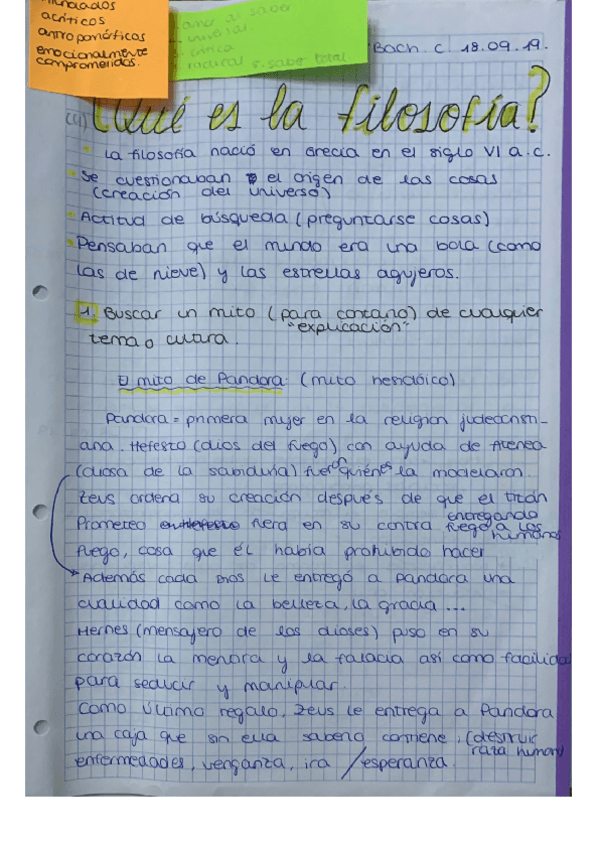 acríticos
antroponáticos
emocionalmente
comprometidos.
amor al saber
universal
crítica
radical 5. saber total
Bach. C. 18.09.19.
¿Qué es la filosofía?
• La filosofía nació en Grecia en el siglo VI a.c.
• Se cuestionaban el origen de las cosas
(creación del universo)
• Actitud de búsqueda (preguntarse cosas)
• Pensaban que el mundo era una bola (como
las de nieve) y las estrellas agujeros.
1. Buscar un mito (para contarlo) de cualquier
"explicación"
tema o cultura.
El mito de Pandora: (mito hesidóico)
Pandora = primera mujer en la religión judeocristi-
ana. Hefesto (dios del fuego) con ayuda de Atenea
(diosa de la sabiduría) fueron quiénes la modelaron.
Zeus ordena su creación después de que el titán
Prometeo fuera en su contra entregando
fuego a los
humanos
fuego, cosa que él había prohibido hacer
Además cada Dios le entregó a Pandora una
cualidad como la belleza, la gracia ...
Hermes (mensajero de los dioses) puso en su
corazón la mentira y la falacia así como facilidad
para seducir y manipular.
Como último regalo, Zeus le entrega a Pandora
una caja que sin ella saberlo contiene, (destruir
raza humana)
enfermedades, venganza, ira / esperanza.